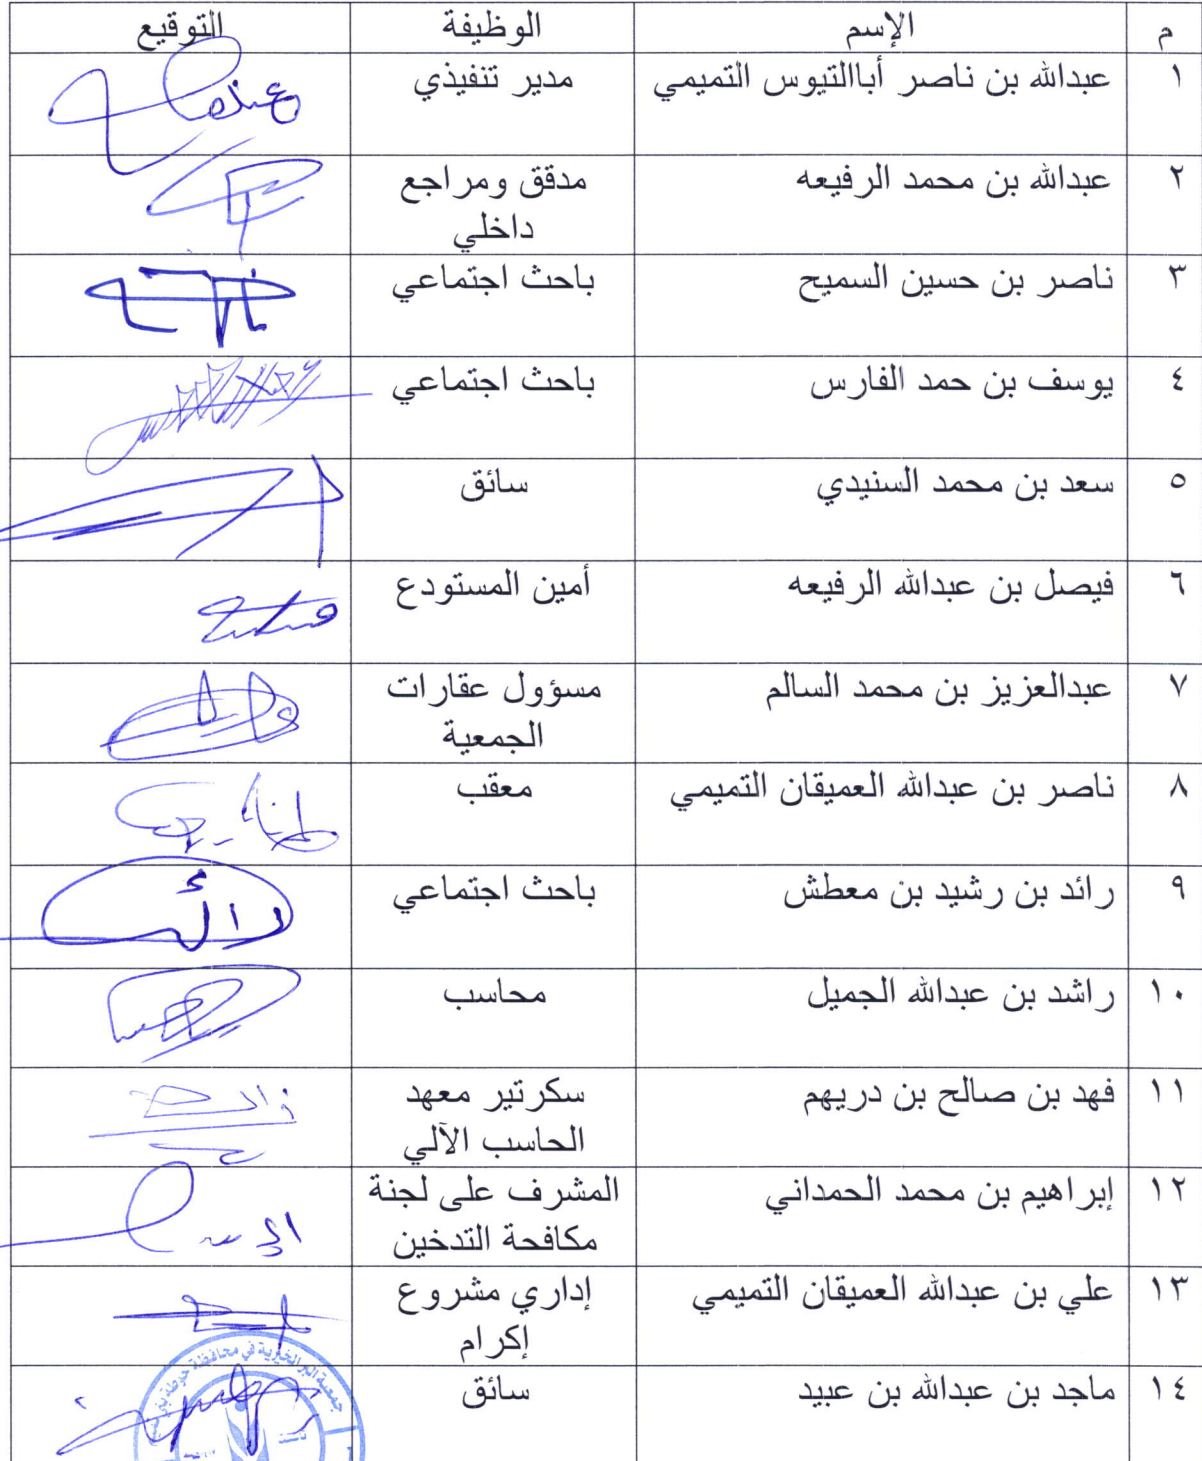 م الإسم الوظيفة التوقيع
١ عبدالله بن ناصر أباالتيوس التميمي مدير تنفيذي
٢ عبدالله بن محمد الرفيعه مدقق ومراجع
داخلي
٣ ناصر بن حسين السميح باحث اجتماعي
٤ يوسف بن حمد الفارس باحث اجتماعي
٥ سعد بن محمد السنيدي سائق
٦ فيصل بن عبدالله الرفيعه أمين المستودع
٧ عبدالعزيز بن محمد السالم مسؤول عقارات
الجمعية
٨ ناصر بن عبدالله العميقان التميمي معقب
٩ رائد بن رشيد بن معطش باحث اجتماعي
١٠ راشد بن عبدالله الجميل محاسب
١١ فهد بن صالح بن دريهم سكرتير معهد
الحاسب الآلي
١٢ إبراهيم بن محمد الحمداني المشرف على لجنة
مكافحة التدخين
١٣ علي بن عبدالله العميقان التميمي إداري مشروع
إكرام
١٤ ماجد بن عبدالله بن عبيد سائق
جمعية البر الخيرية في محافظة حوطة بني